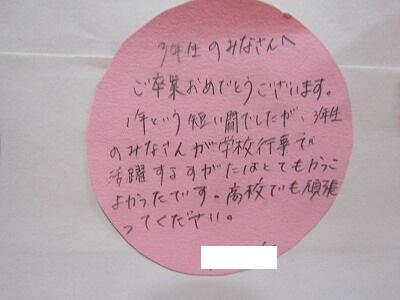 3年生のみなさんへ
ご卒業おめでとうございます。
1年という短い間でしたが、3年生
のみなさんが学校行事で
活躍するすがたはとてもかっこ
よかったです。高校でも頑張
ってください。